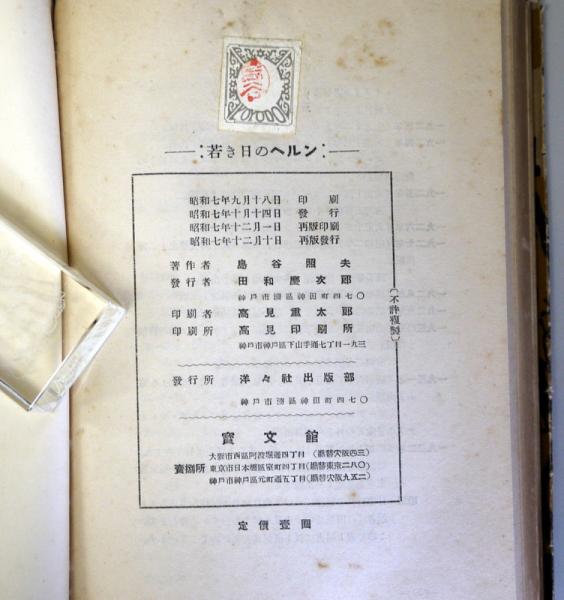 若き日のヘルン
昭和七年九月十八日 印刷
昭和七年十月十四日 發行
昭和七年十二月一日 再版印刷
昭和七年十二月十日 再版發行
著作者 島谷照夫
發行者 田和慶次郎
神戸市湊區神田町四七〇
印刷者 高見重太郎
印刷所 高見印刷所
神戸市神戸區下山手通七丁目一九三
發行所 洋々社出版部
神戸市湊區神田町四七〇
寶文館
大阪市西區阿波堀通四丁目(振替大阪四三)
賣捌所 東京市日本橋區室町四丁目(振替東京二八〇)
神戸市神戸區元町通五丁目(振替大阪九五二)
(不許複製)
定價壹圓